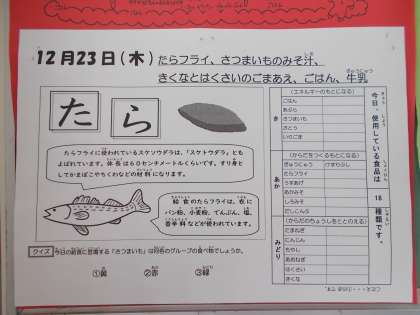 12月23日(木) たらフライ、さつまいものみそ汁、
きくなとはくさいのごまあえ、ごはん、牛乳
たら
たらフライに使われているスケソウダラは、「スケトウダラ」とも
よばれています。体長は60センチメートルくらいです。すり身と
してかまぼこやちくわなどの材料になります。
給食のたらフライは、衣に
パン粉、小麦粉、でんぷん、塩、
香辛料などが使われています。
クイズ 今日の給食に登場する「さつまいも」は何色のグループの食べ物でしょうか。
①黄 ②赤 ③緑
今日、使用している食品は 18 種類です。
き
(エネルギーのもとになる)
ごはん
あぶら
さつまいも
さとう
いりごま
あか
(からだをつくるもとになる)
ぎゅうにゅう けずりぶし
たらフライ
うすあげ
あかみそ
しろみそ
だしこんぶ
みどり
(からだのちょうしをととのえる)
たまねぎ
にんじん
もやし
あおねぎ
はくさい
きくな